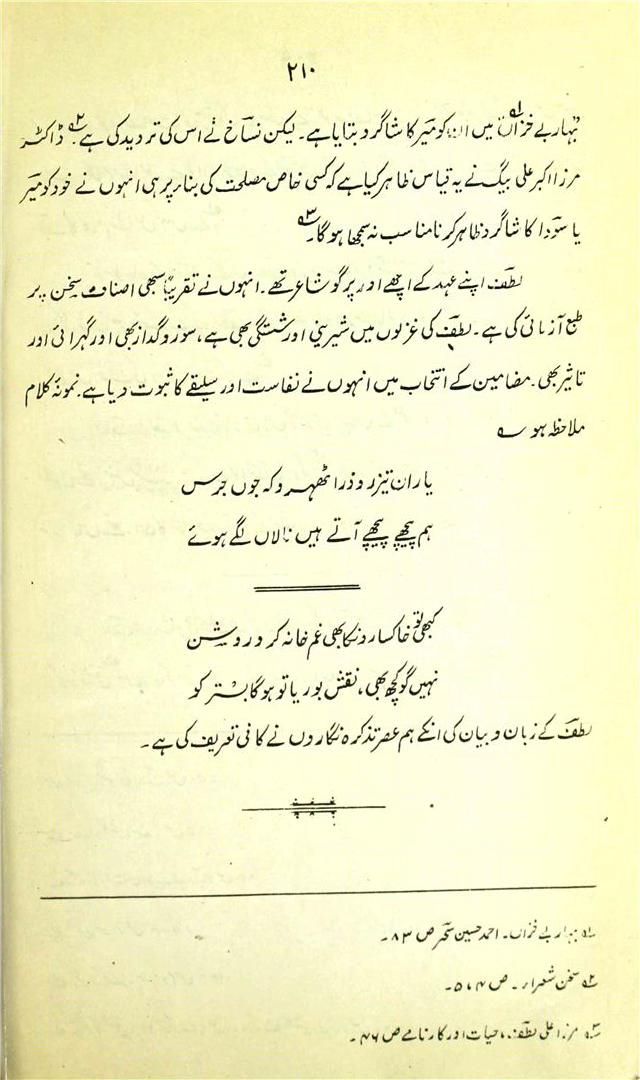 ۲۱۰
بہار بے خزاں۱؎ میں ان کو میرؔ کا شاگرد بتایا ہے۔ لیکن نساخؔ نے اس کی تردید کی ہے۔۲؎ ڈاکٹر
مرزا اکبر علی بیگ نے یہ قیاس ظاہر کیا ہے کہ کسی خاص مصلحت کی بناء پر ہی انہوں نے خود کو میرؔ
یا سوداؔ کا شاگرد ظاہر کرنا مناسب نہ سمجھا ہوگا۔۳؎
لطفؔ اپنے عہد کے اچھے اور پرگو شاعر تھے۔ انہوں نے تقریباً سبھی اصناف سخن پر
طبع آزمائی کی ہے۔ لطفؔ کی غزلوں میں شیرینی اور شستگی بھی ہے، سوز و گداز بھی اور گہرائی اور
تاثیر بھی۔ مضامین کے انتخاب میں انہوں نے نفاست اور سلیقے کا ثبوت دیا ہے۔ نمونۂ کلام
ملاحظہ ہو ؎
یاران تیز رو ذرا ٹھہرو کہ جوں جرس
ہم پیچھے پیچھے آتے ہیں نالاں لگے ہوئے
کبھی تو خاکساروں کا بھی غم خانہ کرو روشن
نہیں گو کچھ بھی، نقش بوریا تو ہوگا بستر کو
لطفؔ کے زبان و بیان کی انکے ہم عصر تذکرہ نگاروں نے کافی تعریف کی ہے۔
۱؎ بہار بے خزاں۔ احمد حسین سحرؔ ص ۸۳۔
۲؎ سخن شعراء۔ ص
۳؎ مرزا علی لطفؔ، حیات اور کارنامے ص ۴۶۔